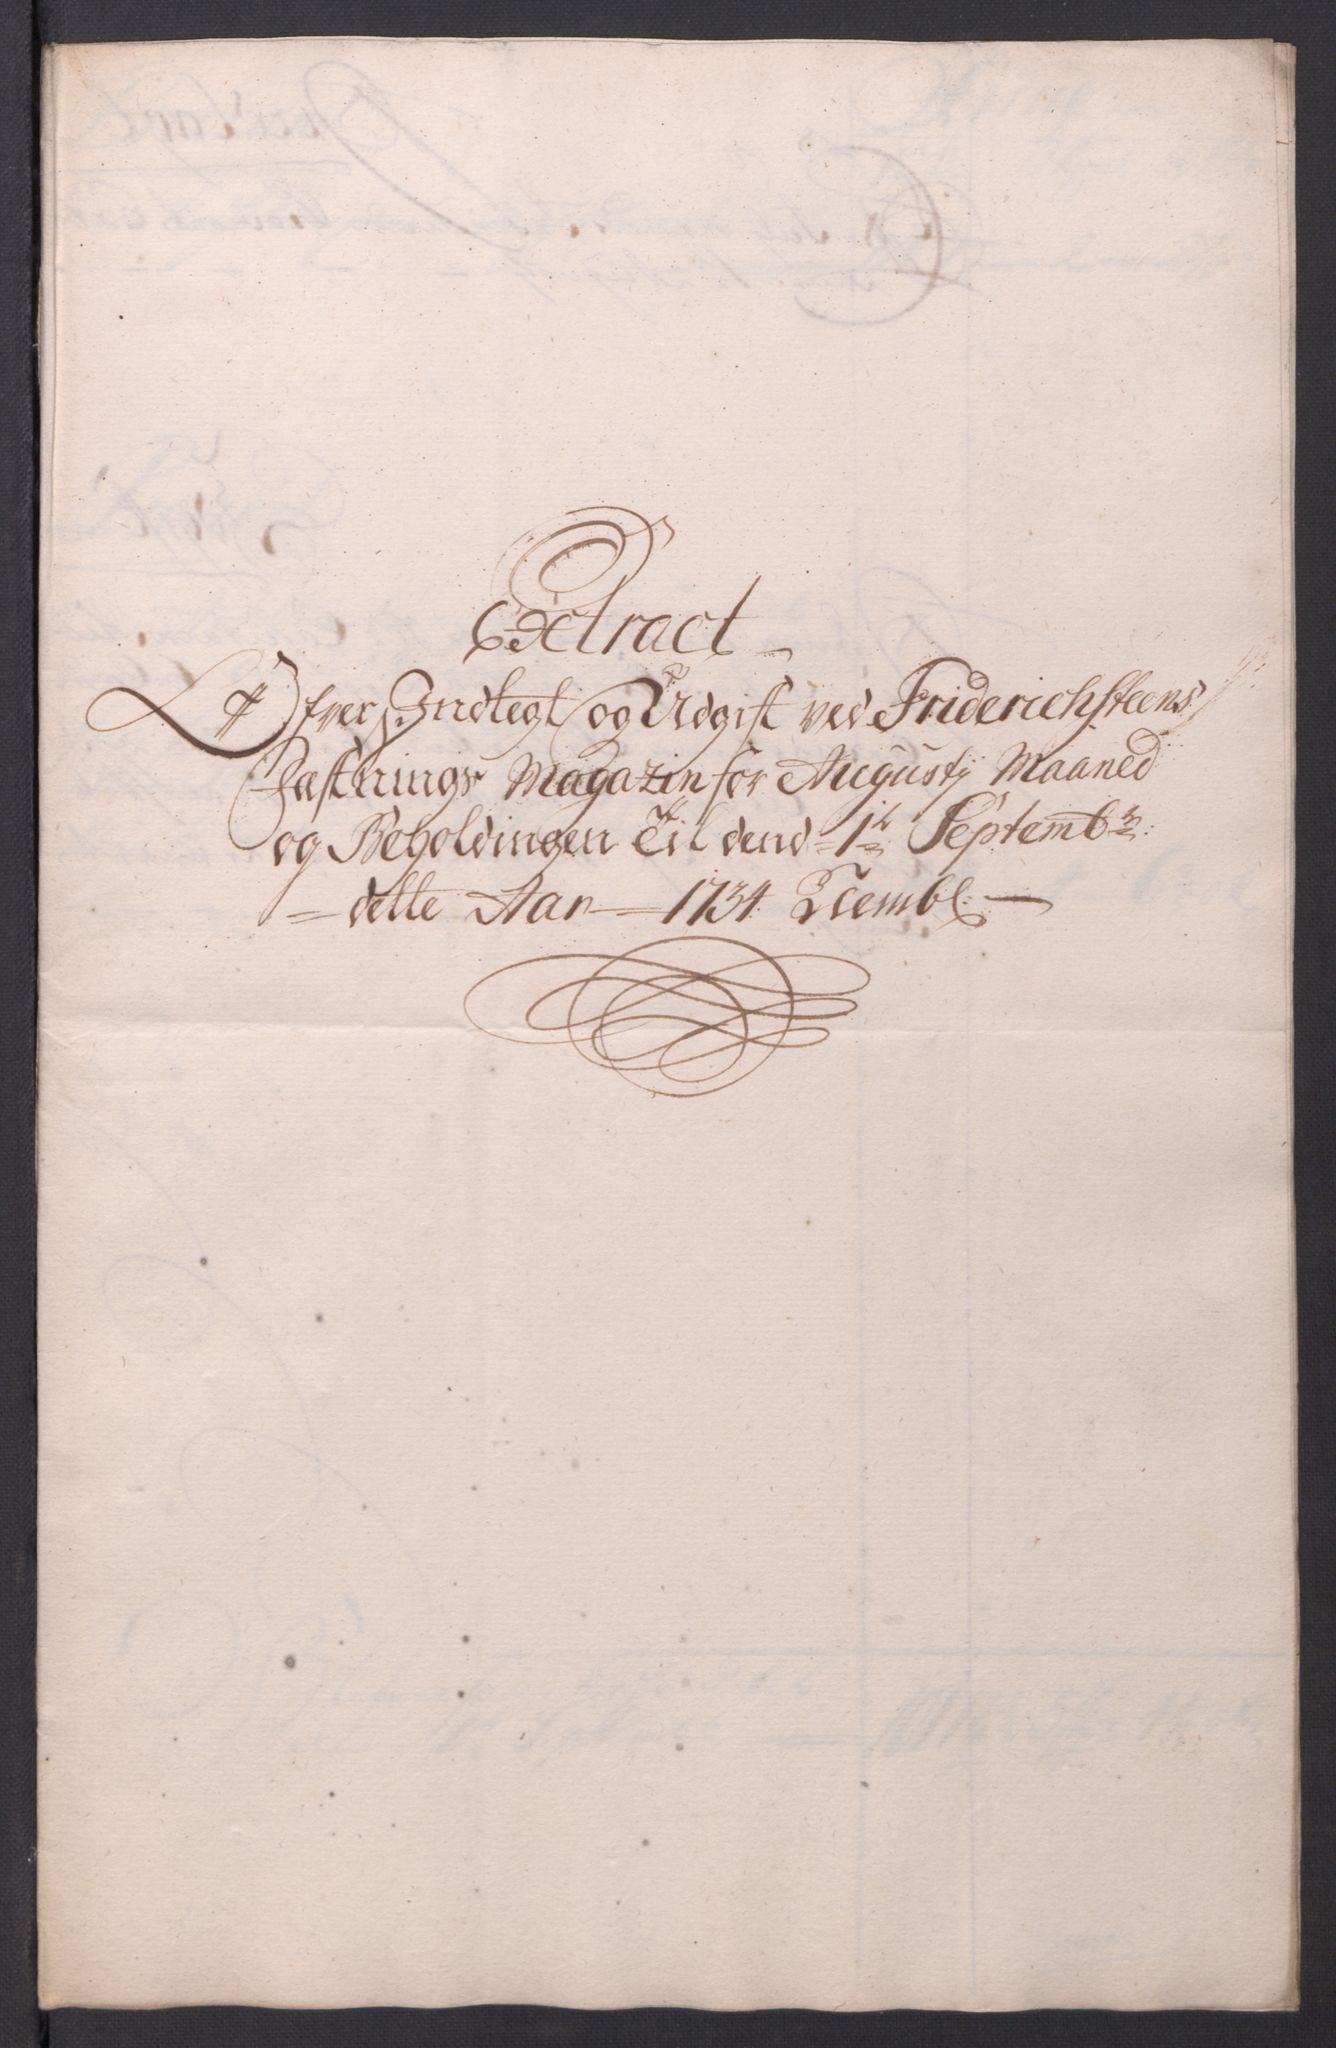 Extract
Ofver Indtegt og Udgift ved Friderichsteens
Fæstnings Magazin for Augustÿ Maaned
og Beholdingen Til dend 1te Septembr:
dette Aar 1734